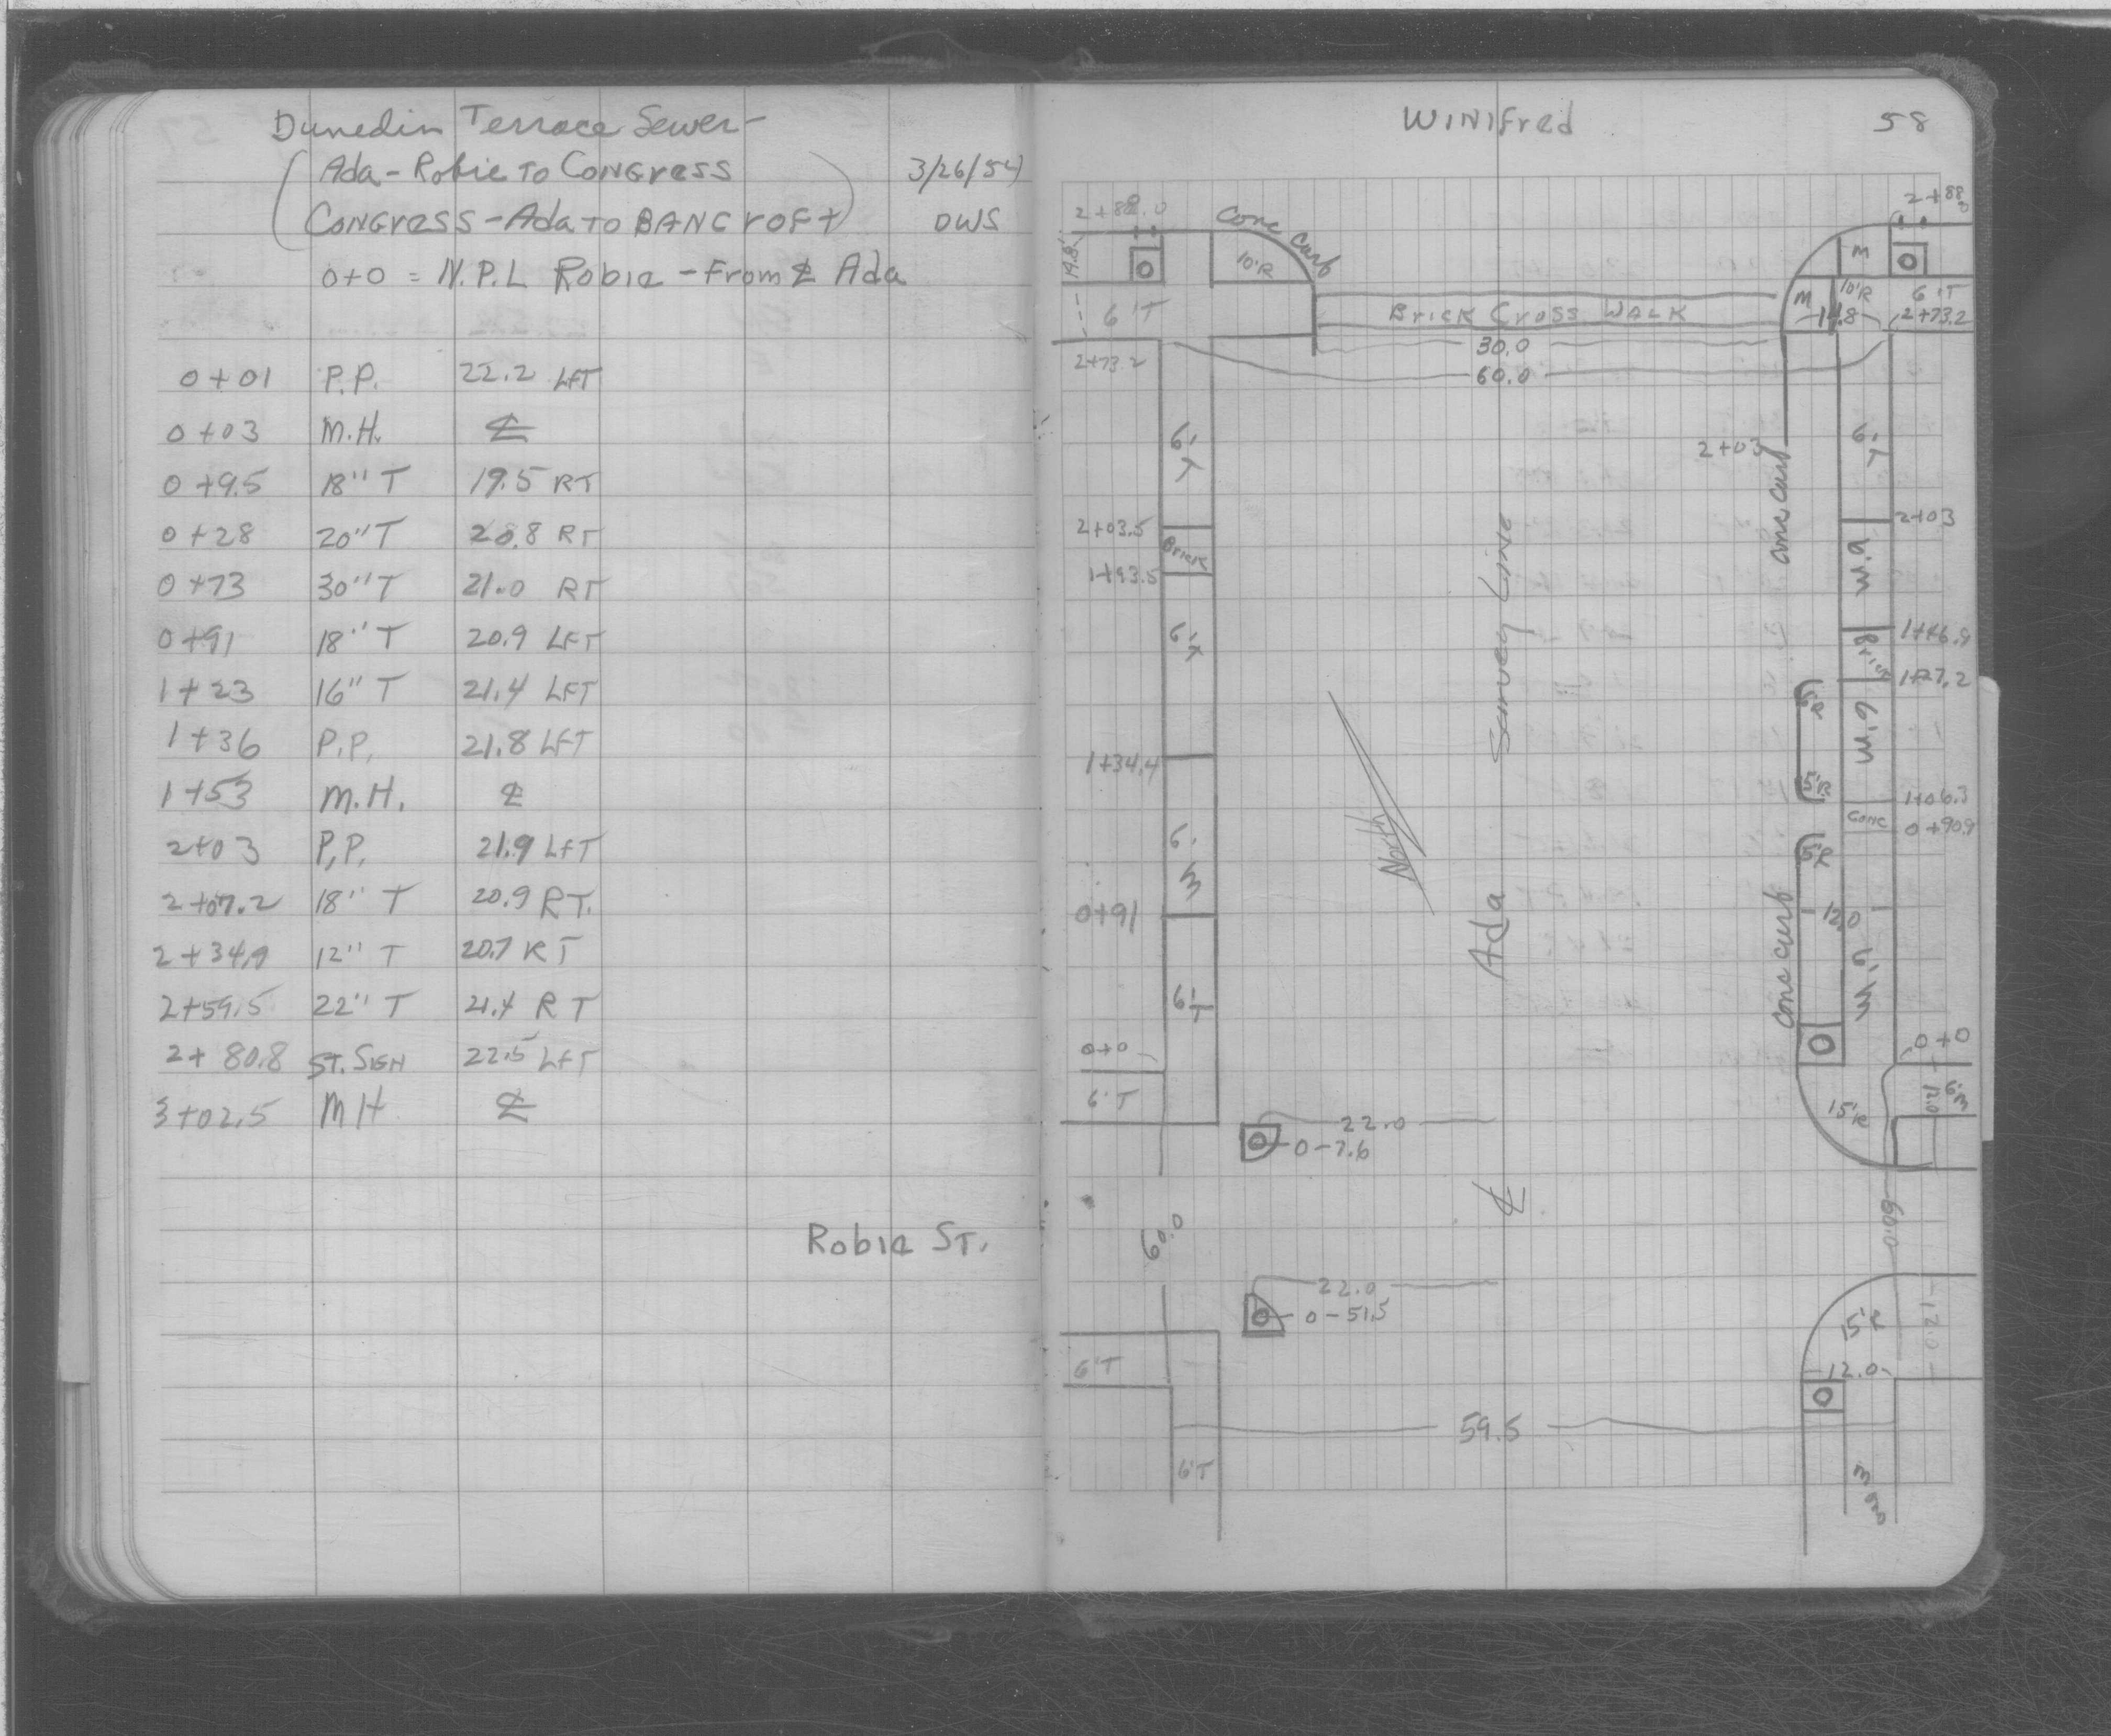 Dunedin Terrace Sewer-
(Ada - Robie To Congress) 3/26/54
Congress - Ada To Bancroft) DWS
0+0 = N.P.L Robie - From ℄ Ada
0+01 P.P. 22.2 LFT
0+03 M.H. ℄
0+9.5 18" T 19.5 RT
0+28 20" T 20.8 RT
0+73 30" T 21.0 RT
0+91 18" T 20.9 LFT
1+23 16" T 21.4 LFT
1+36 P.P. 21.8 LFT
1+53 M.H. ℄
2+03 P.P. 21.9 LFT
2+07.2 18" T 20.9 RT.
2+34.9 12" T 20.7 RT
2+59.5 22" T 21.4 RT
2+80.8 ST. SIGN 22.5 LFT
3+02.5 MH ℄
Robie ST.
Winifred 58
2+88.0 Conc Curb 2+88.0
14.8 10'R M
6'T Brick Cross Walk M 10'R 6'T
14.8 2+73.2
2+73.2 30.0
60.0
6'T 2+03 6'T
2+03.5 Conc Curb 2+03
Brick 6'M
1+93.5
6'T Survey Line Brick 1+46.9
1+27.2
5'R 6'M
1+34.4 5'R 1+06.3
Conc 0+90.9
6'M North 5'R
0+91 Ada Conc Curb 12.0
6'T 6'M
0+0 0+0
6'T 15'R 12.0 6'M
22.0
0-7.6
℄
60.0 60.0
22.0
0-51.5 15'R 12.0
6'T 12.0
59.5
6'T M